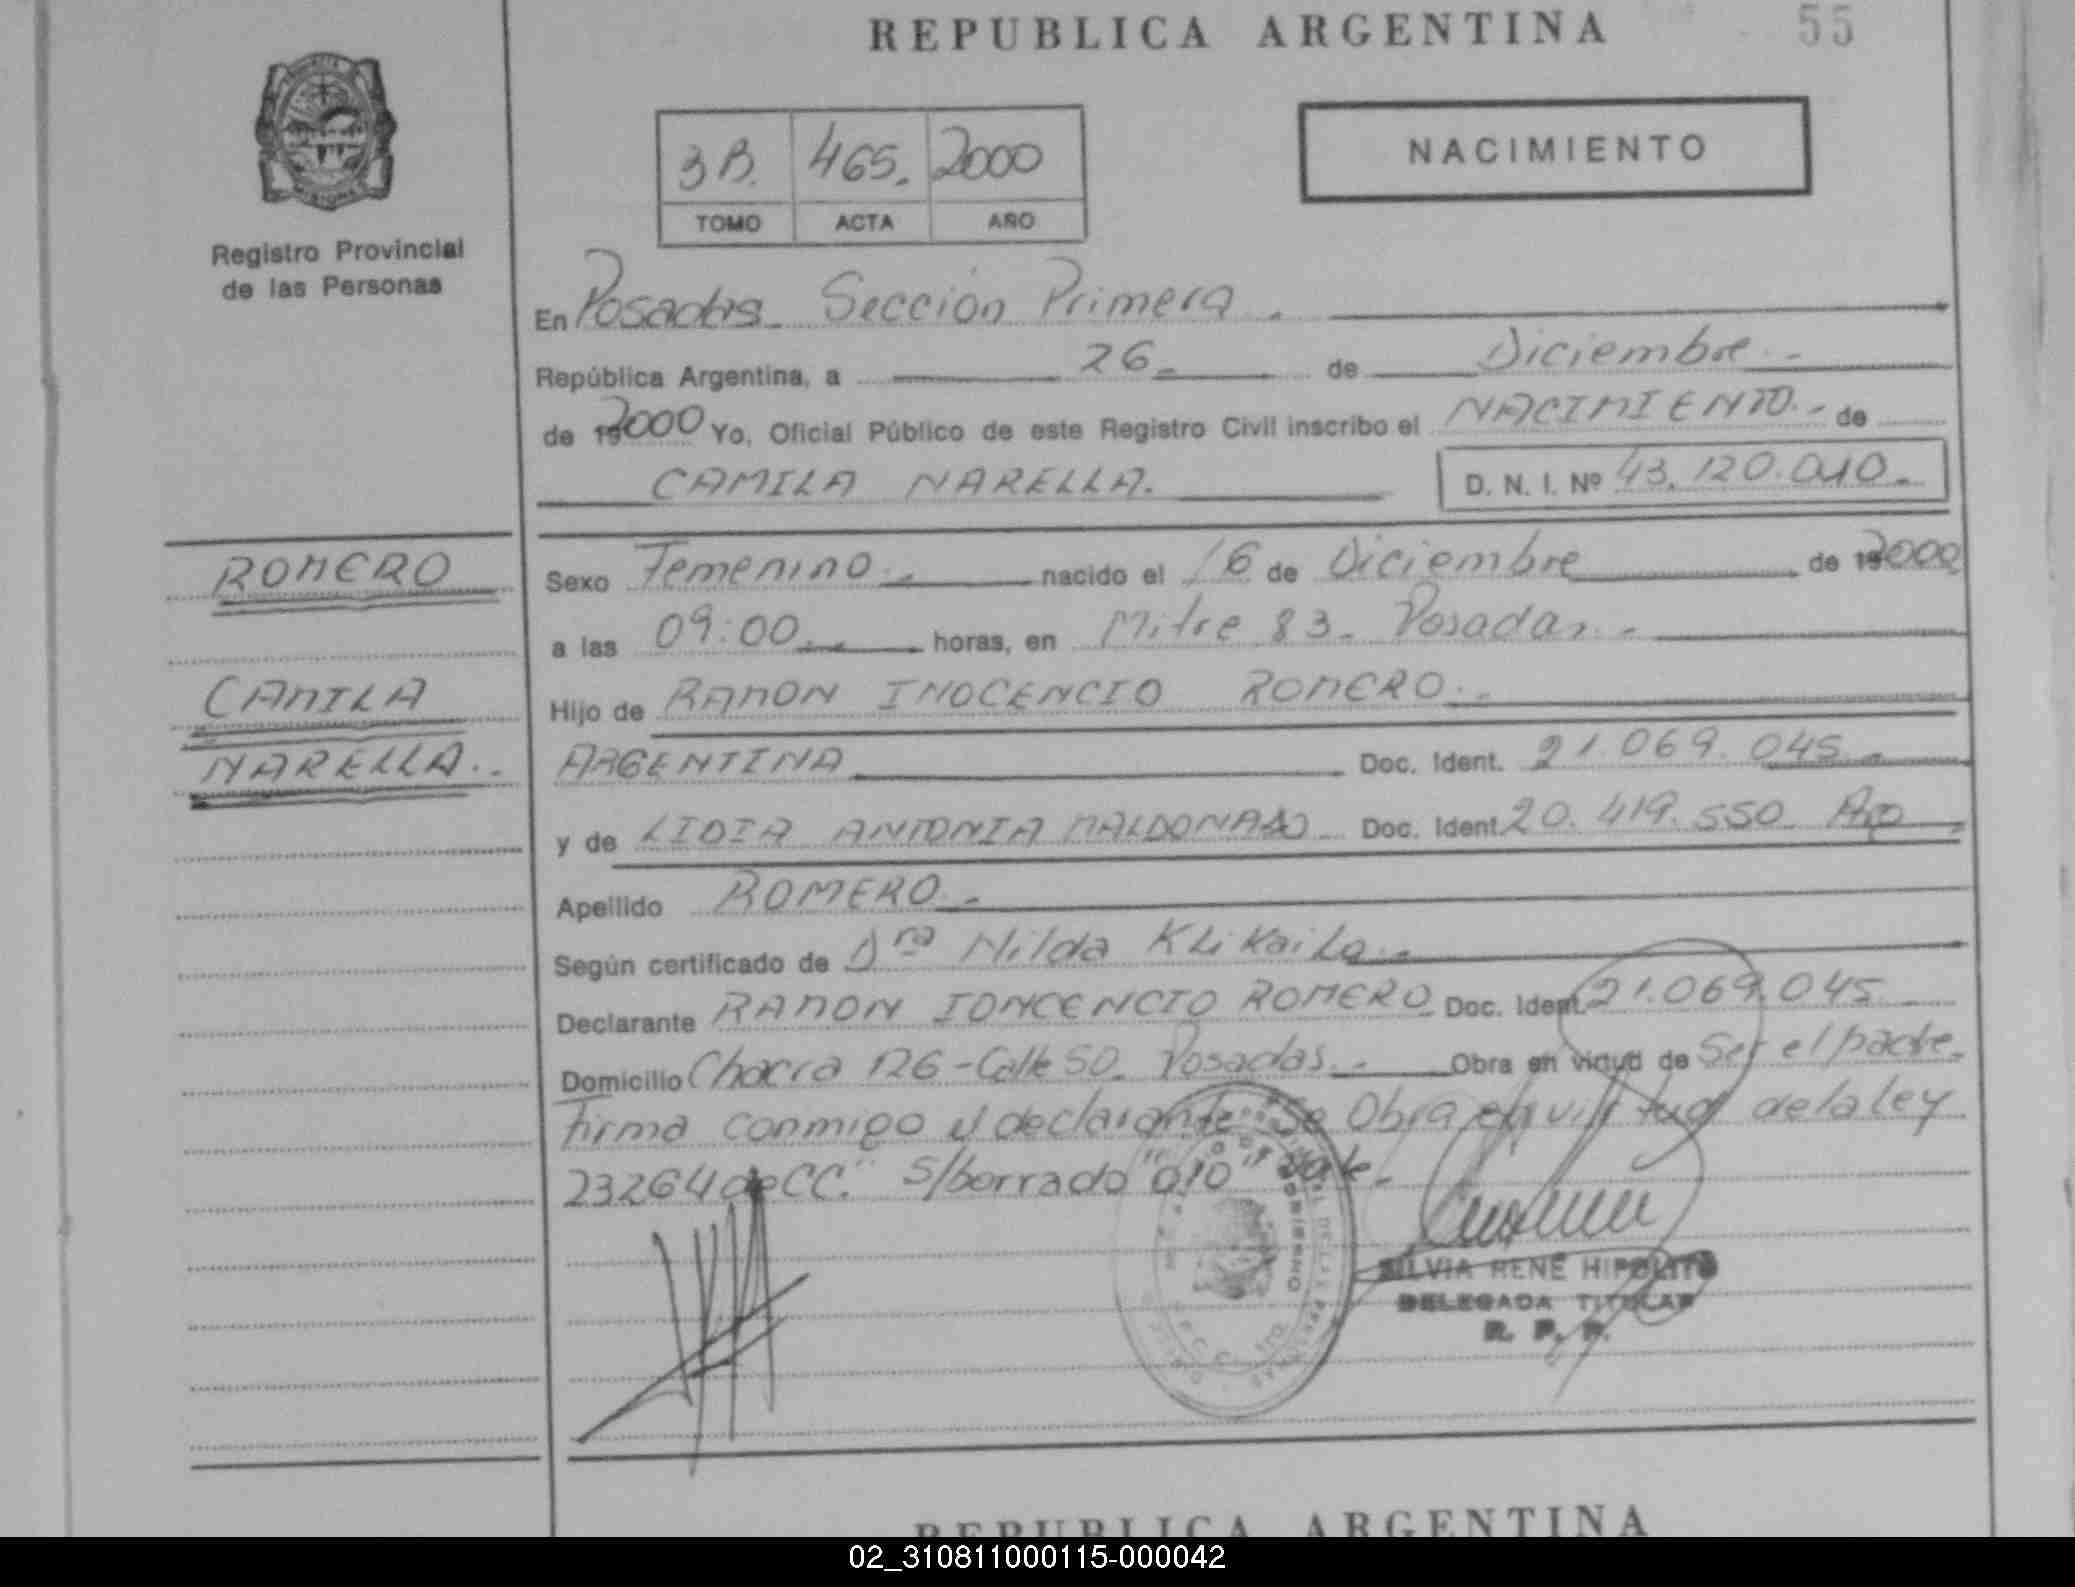 REPUBLICA ARGENTINA 55
Registro Provincial
de las Personas
3B. 465. 2000
TOMO ACTA AÑO
NACIMIENTO
En Posadas. Sección Primera.
República Argentina, a 26 de Diciembre.-
de 192000 Yo, Oficial Público de este Registro Civil inscribo el NACIMIENTO.- de
CAMILA NARELLA. D. N. I. Nº 43.120.010.-
ROMERO
CAMILA
NARELLA.-
Sexo Femenino.- nacido el 16 de Diciembre de 192000
a las 09:00 horas, en Mitre 83. Posadas.-
Hijo de RAMON INOCENCIO ROMERO.-
ARGENTINA Doc. Ident. 21.069.045.-
y de LIDIA ANTONIA MALDONADO Doc. Ident. 20.419.550 Arg
Apellido ROMERO.-
Según certificado de Dra Nilda
Declarante RAMON IONCENCIO ROMERO Doc. Ident. 21.069.045
Domicilio Chacra 126 - Calle 50. Posadas.- Obra en virtud de Ser el padre.
Firma conmigo el declarante Se Obra en virtud de la ley
23264 de CC." S/borrado "010" Vale.
SILVIA RENÉ HIPOLITO
DELEGADA TITULAR
R. P. P.
REPUBLICA ARGENTINA
02_310811000115-000042